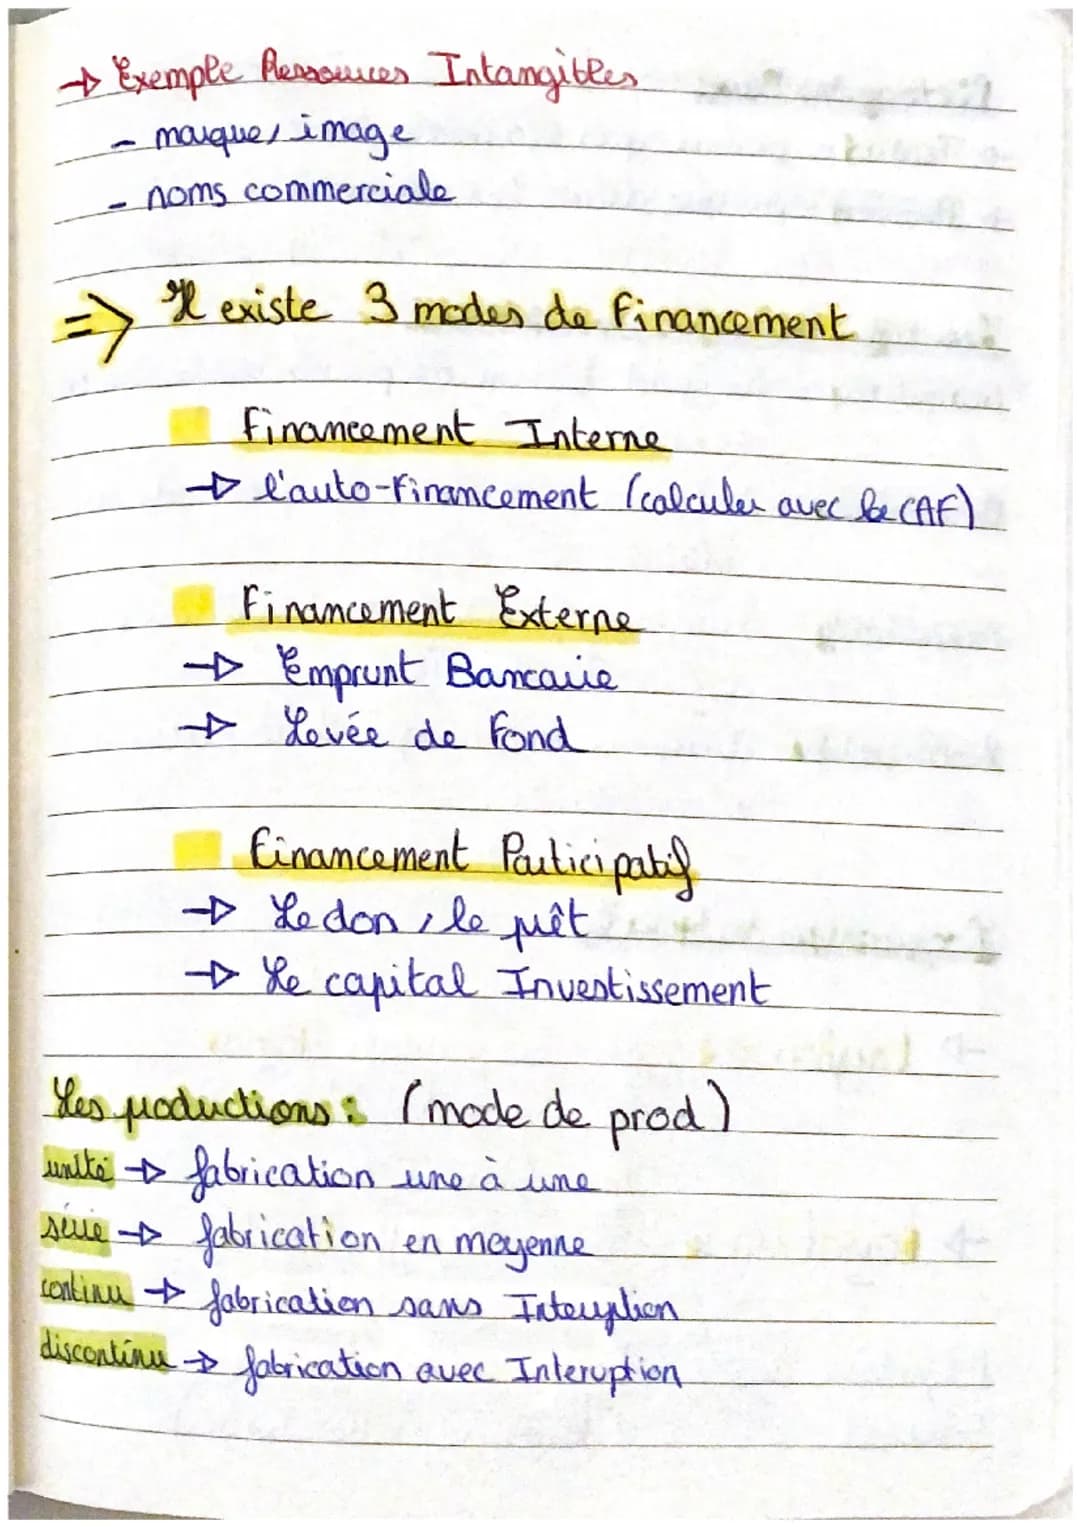 → Exemple Ressources Intangibles
- marque, image
- noms commerciale
⇒ Il existe 3 modes de financement
Financement Interne
→ l'auto-financement (calculer avec le CAF)
Financement Externe
→ Emprunt Bancaire
→ Levée de Fond
Financement Participatif
→ Le don, le prêt
→ Le capital Investissement
Les productions : (mode de prod)
unité → fabrication une à une
série → fabrication en moyenne
continu → fabrication sans Interuption
discontinu → fabrication avec Interuption